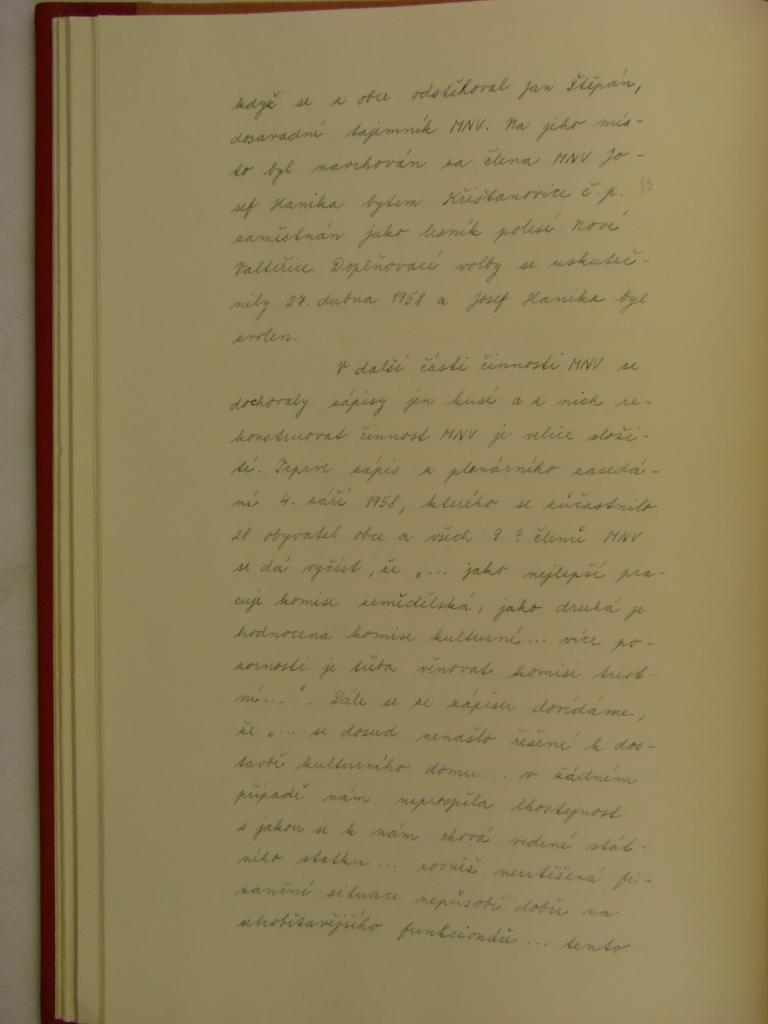 když se z obce odstěhoval Jan Štěpán,
dosavadní tajemník MNV. Na jeho mís-
to byl navrhován za člena MNV Jo-
sef Hanika bytem Křišťanovice č.p.
85
zaměstnán jako lesník polesí Nové
Valteřice. Doplňovací volby se uskuteč-
nily 27. dubna 1958 a Josef Hanika byl
zvolen.
V další části činnosti MNV se
dochovaly zápisy jen kusé a z nich re-
konstruovat činnost MNV je velice složi-
té. Teprve zápis z plenárního zasedá-
ní 4. září 1958, kterého se zúčastnilo
28 obyvatel obce a všech 9 ? členů MNV
se dá vyčíst, že „... jako nejlepší pra-
cuje komise zemědělská, jako druhá je
hodnocena komise kulturní ... více po-
zornosti je třeba věnovat komisi trest-
ní ...". Dále se ze zápisu dovídáme,
že „... se dosud nenašlo řešení k dos-
tavbě kulturního domu ... v žádném
případě nám neprospěla lhostejnost
s jakou se k nám chová vedení stát-
ního statku ... rovněž neutěšená fi-
nanční situace nepůsobí dobře na
sebeobětavějšího funkcionáře ... tento